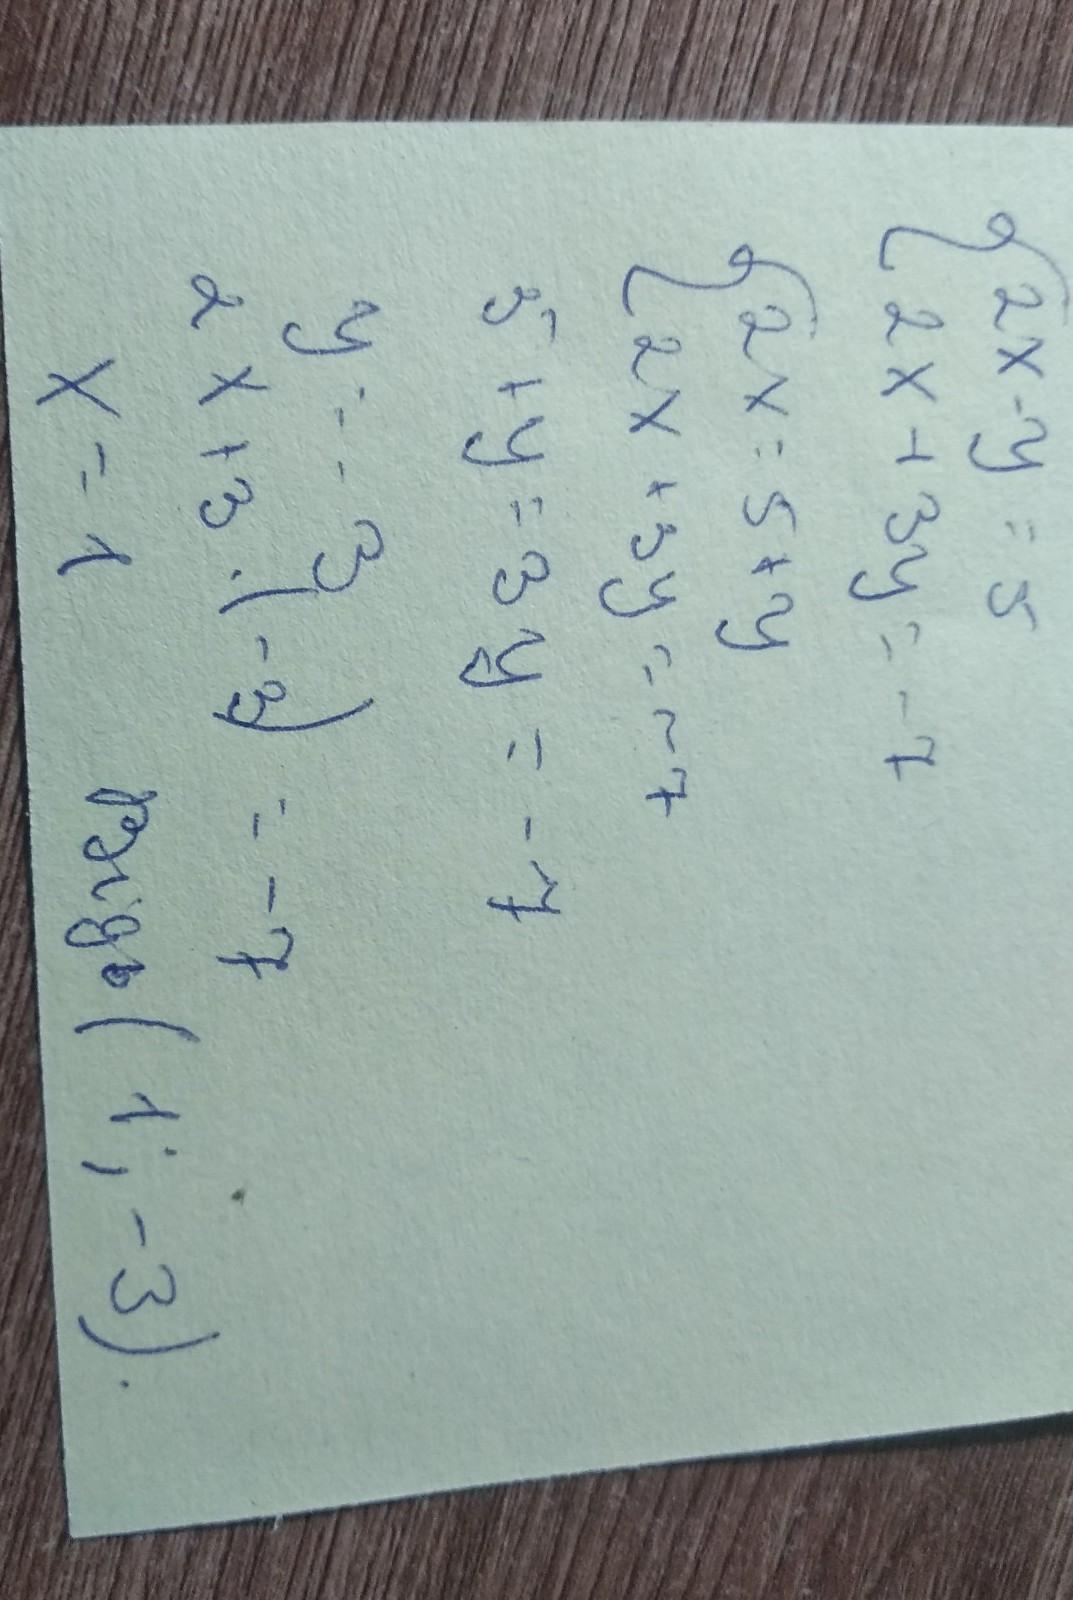 {2x-y=5
{2x+3y=-7
{2x=5+y
{2x+3y=-7
5+y=3y=-7
y=-3
2x+3·(-3)=-7
x=1 (1;-3).